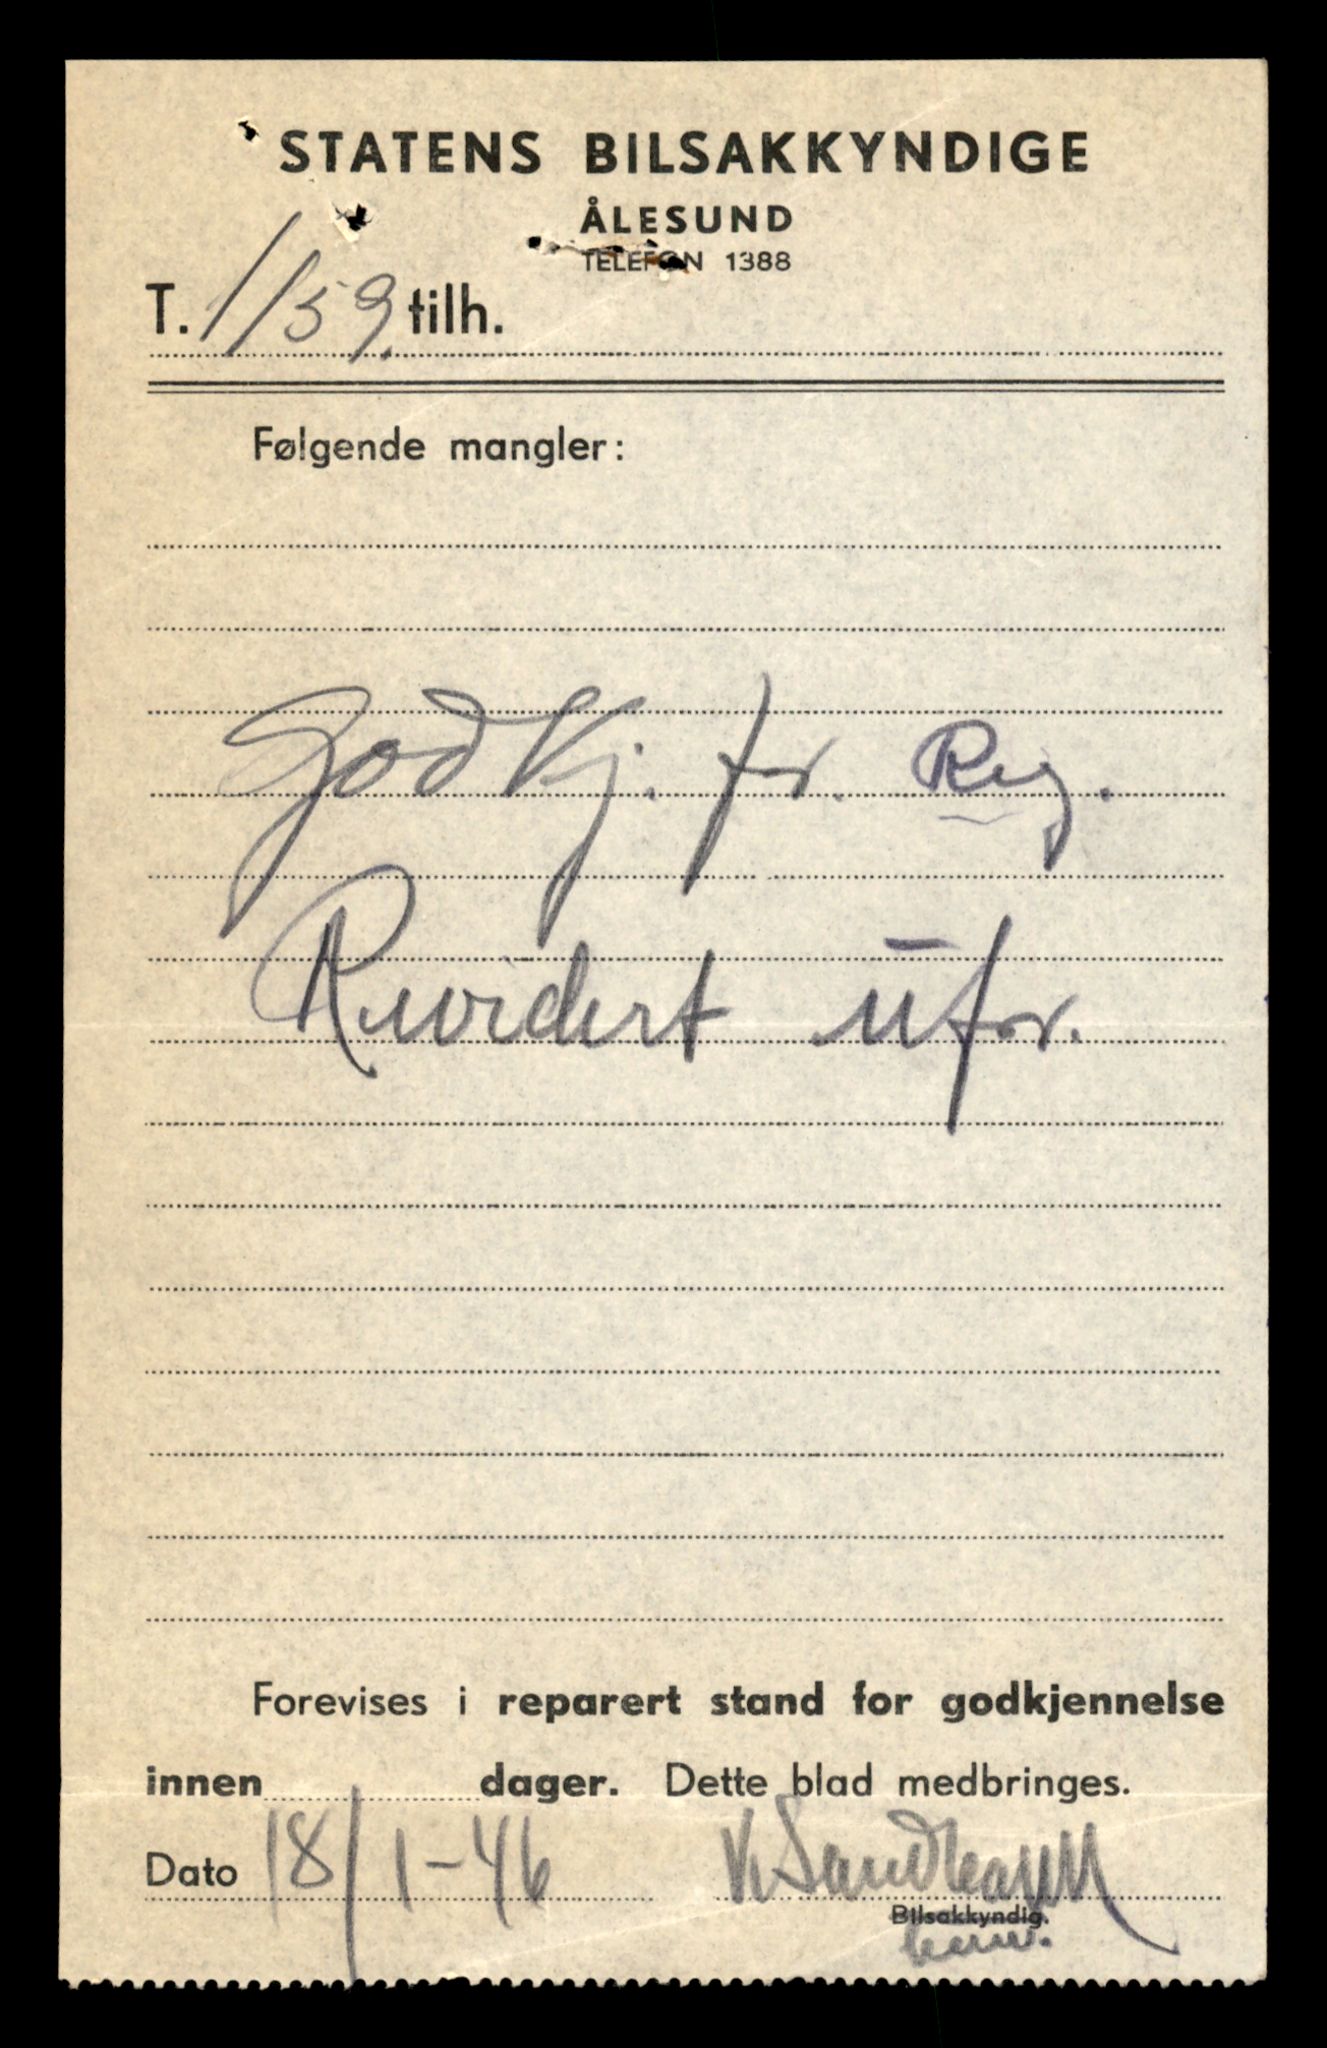 STATENS BILSAKKYNDIGE
ÅLESUND
TELEFON 1388
T. 1/59. tilh.
Følgende mangler:
Godkj. for. Reg.
Revidert ufor.
Forevises i reparert stand for godkjennelse
innen dager. Dette blad medbringes.
Dato 18/1-46
Bilsakkyndig.